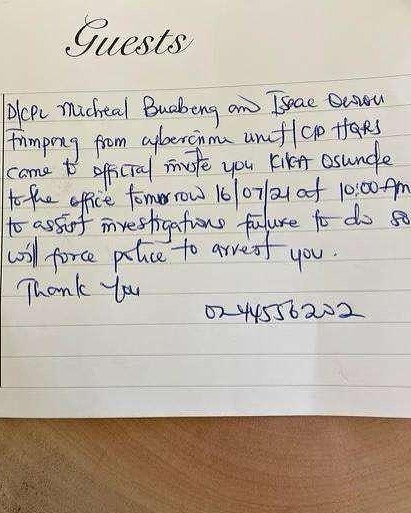 Guests
D/CPL Micheal Buabeng and Isaac Owusu
Frimpong from cybercrime unit/CID HQRS
came to official invite you KIKA Osunde
to the office tomorrow 16/07/21 at 10:00Am
to assist investigations failure to do so
will force police to arrest you.
Thank You
0244556202